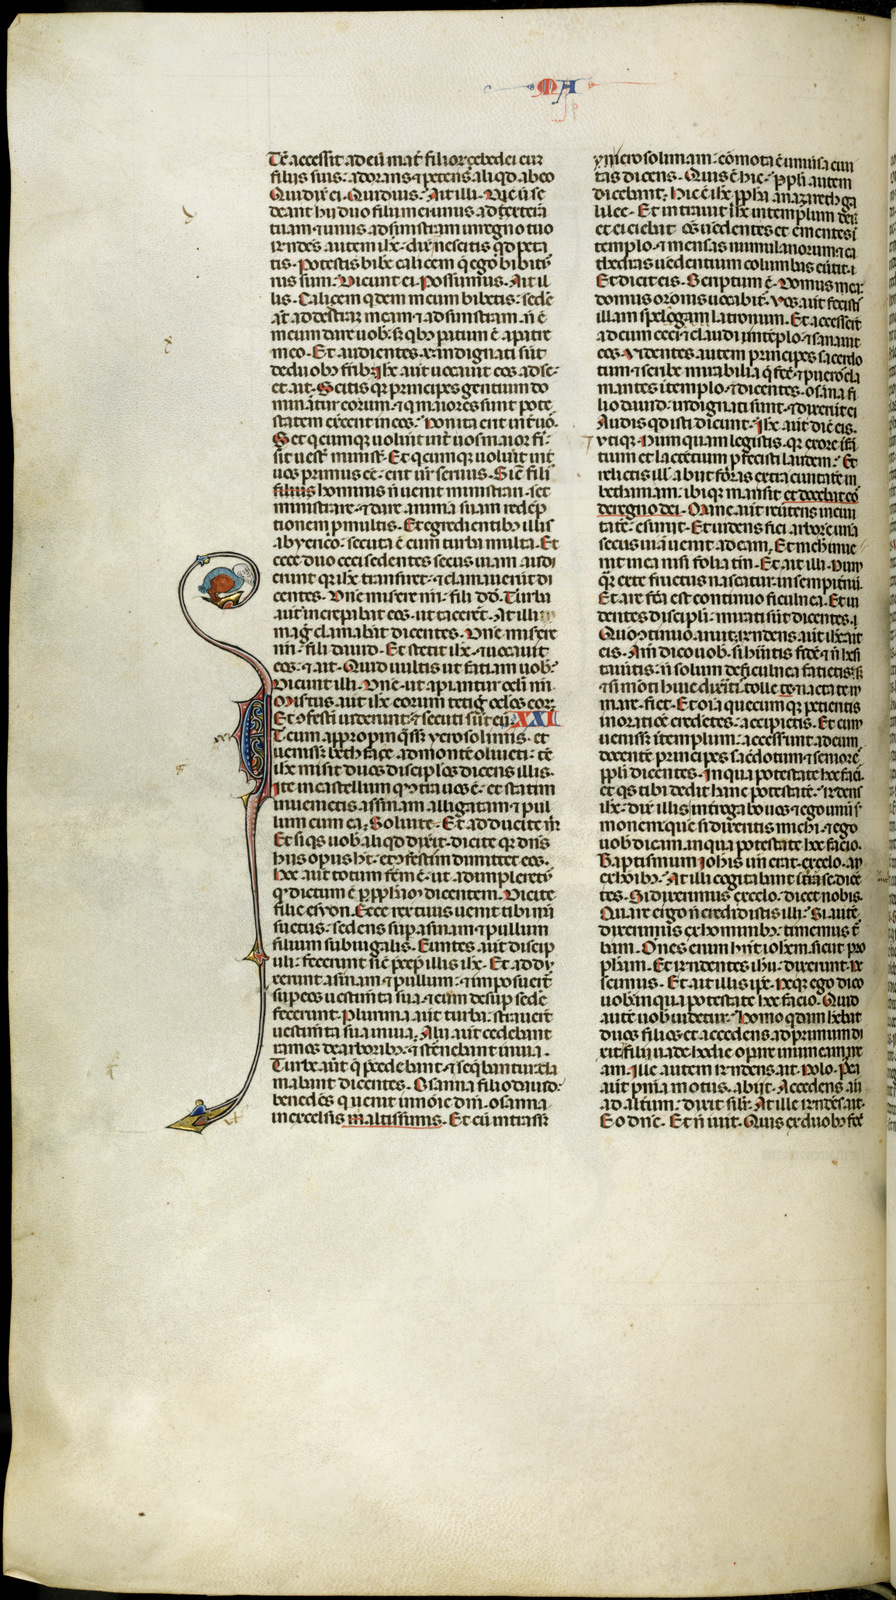 MA
Tc̄ accessit ad eū mat̄ filiorum zebedei cum
filiis suis: adorans ⁊ petens aliqd ab eo
Qui dix̄ ei. Quid uis: Ait illi. Dic ū se
deant hii duo filii mei unus ad dexterā
tuam ⁊ unus ad sinistram in regno tuo
Rn̄dens autem ihc̄. dix̄ nescitis qd peta
tis. Potestis bibē calicem q̄ ego bibitu
rus sum: Dicunt ei. Possumus. Ait il
lis. Calicem qdem meum bibetis: sedē
at̄ ad dextrā meam ⁊ ad sinistram. n̄ ē
meum dare uob. s; qb; patum ē a patre
meo. Et audientes .x. indignati sūt
de duob; frīb;. ihc̄ aūt uocauit eos ad se.
et ait. Scitis qr principes gentium do
minātur eorum: ⁊ q maiores sunt pote
statem exercent in eos: Non ita erit int̄ uos.
Set qcumq; uoluit int̄ uos maior fi
sit uest̄ minist̄. Et qcumq; uoluit int̄
uos primus eē. erit ur̄ seruus. Sic̄ filī
filius hominis n̄ uenit ministrari. set
ministrare. ⁊ dare animā suam redēp
tionem p multis. Et egredientib; illis
ab yerico. secuta ē eum turba multa. Et
ecce duo ceci sedentes secus uiam. audi
erunt qr ihc̄ transiret. ⁊ clamauerūt di
centes. Dn̄e miserē nr̄i. fili dd̄. Turba
aūt increpabat eos. ut tacerēt. At illi
mag̃ clamabāt dicentes. Dn̄e miserē
nr̄i. fili dauid. Et stetit ihc̄. ⁊ uocauit
eos. ⁊ ait. Quid uultis ut faciam uob̄:
Dicunt illi. Dn̄e. ut apiantur oculi nr̄i.
Misertus aūt ihc̄ eorum. tetig̃ oclos eor;
Et ꝯfestī uiderunt. ⁊ secuti sūt eū. XXI
ET cum appropinq̄ss; yerosolimis. et
uenissz bethface ad montē oliueti: tc̄
ihc̄ misit duos discipl̄os dicens illis.
Ite in castellum qd ꝯtra uos ē. et statim
inuenietis asinam alligatam ⁊ pul
lum cum ea. Soluite. Et adducite m̄.
Et si qs uob̄ aliqd dixit. dicite qr dn̄s
hiis opus ht̄. et ꝯfestim dimittet eos.
Hoc aūt totum fc̄m ē. ut adimpleretur
qd dictum ē p pph̄am dicentem. Dicite
filie syon. Ecce rex tuus uenit tibi m̄
suetus. sedens sup asinam. ⁊ pullum
filium subiugalis. Euntes aūt discip
uli. fecerunt sic̄ p̄cep̄ illis ihc̄. Et addu
xerunt asinam ⁊ pullum: ⁊ imposuer̄t
sup eos uestim̄ta sua. ⁊ eum desup sedē
fecerunt. Plurima aūt turba. strauerūt
uestim̄ta sua in uia. Alii aūt cedebant
ramos de arborib; ⁊ st̄nebant in uia.
Turbe aūt q̄ p̄cedebant. ⁊ seq̄bantur cla
mabant dicentes. Osanna filio dauid.
benedc̄s q uenit in noīe dn̄i. osanna
in excelsis in altissimis. Et cū intrass;
yherosolimam. cōmota ē uniu̅sa ciui
tas dicens. Quis ē hic. Ppl̄i autem
dicebant. Hic ē ihc̄ pph̄a a nazareth ga
lilee. Et intrauit ihc̄ in templum dei.
et eiciebat os uēdentes et ēmentes ī
templo. ⁊ mensas nummulariorum. ⁊ ca
thedras uēdentium columbas eūtit. ⁊
Et dicit eis. Scriptum ē. Domus mea
domus orōnis uocabit̄. Vos aūt fecistis
illam speloncam latronum. Et accesserūt
ad eum ceci ⁊ claudi ī templo. ⁊ sanauit
eos. Videntes autem principes sacerdo
tum ⁊ scribe mirabilia q̄ fec̄. ⁊ pueros cla
mantes ī templo. ⁊ dicentes. osāna fi
lio dauid. indignati sunt. ⁊ dixerūt ei
Audis qd isti dicunt. Ihc̄ aūt dix̄ eis.
Vtiq;. Numquam legistis. qr ex ore īfā
tium et lactētium pfecisti laudem: Et
relictis ill̄. abiit foras extra ciuitatē in
bethaniam. ibiq; mansit et docebat eos
de regno dei. Mane aūt reūtens in ciui
tatē. esuriit. Et uidens fici arborē unā
secus uiā uenit ad eam. Et nichil inue
nit in ea nisi folia tm̄. Et ait illi. Nun
q̄ ex te fructus nascatur in sempit̄nū.
Et arefc̄a est continuo ficulnea. Et ui
dentes discipli. mirati sūt dicentes.
Quō ꝯtinuo aruit: Rn̄dens aūt ihc̄. ait
eis. Am̄ dico uob̄. si hūitis fidē ⁊ n̄ hesi
tauitis. n̄ solum de ficulnea facietis. s;
⁊ si monti huic dixītis. tolle te ⁊ iacta te in
mare. fiet. Et oīa quecumq; petieritis
in oratiōe credētes: accipietis. Et cum
ueniss; ī templum: accesserunt ad eum
docentē principes sac̄dotum. ⁊ seniores
ppli dicentes. In qua potestate hec facis.
et qs tibi dedit hanc potestatē: Rn̄dens
ihc̄. dix̄ illis. int̄rogabo uos ⁊ ego unū s̄
monem. que si dixeritis michi. ⁊ ego
uob̄ dicam in qua potestate hec facio.
Baptismum ioh̄is un̄ erat. ex celo. an
ex hoib;. At illi cogitabant int̄ se dicē
tes. Si dixerimus ex celo. dicet nobis.
Quare ergo n̄ credidistis illi: Si autē
dixerimus ex hominib;. timemus t̄
bam. Om̄es enim hn̄t iohem sicut pro
ph̄am. Et rn̄dentes ihū: dixerunt. ne
scimus. Et ait illis ipe. Neq; ego dico
uob̄ in qua potestate hec facio. Quid
autē uob̄ uidetur: Homo qdam hēbat
duos filios. et accedens ad primum di
xit. fili uade hodie opare in uineam me
am. Ille autem rn̄dens ait. Nolo. Pea
aūt pn̄ia motus. abiit. Accedens aū
ad altum: dixit silr̄. At ille rn̄dēs ait.
Eo dn̄e. Et n̄ iuit. Quis ex duob; fec̄